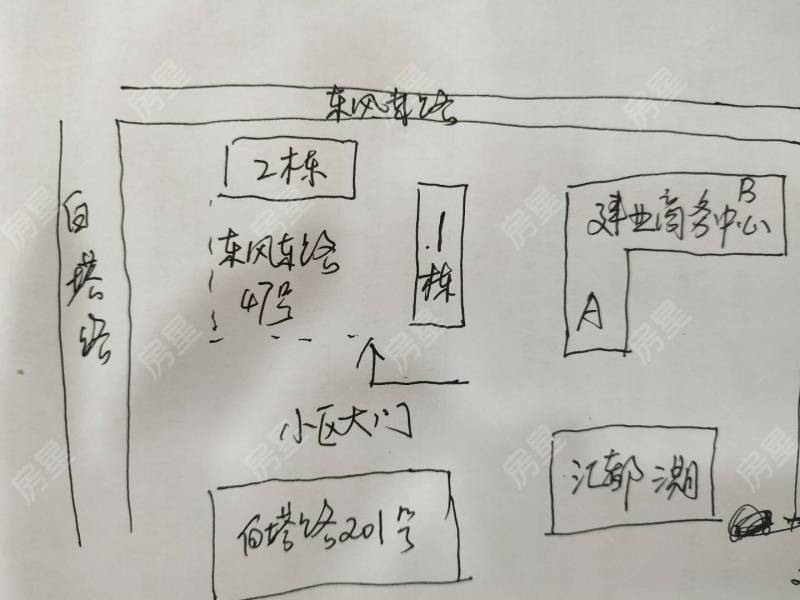 东风东路
2栋
白塔路
东风东路
47号
1栋
建业商务中心
B
A
小区大门
汇都 潮
白塔路201号
房星
房星
房星
房星
房星
房星
房星
房星
房星
房星
房星
房星